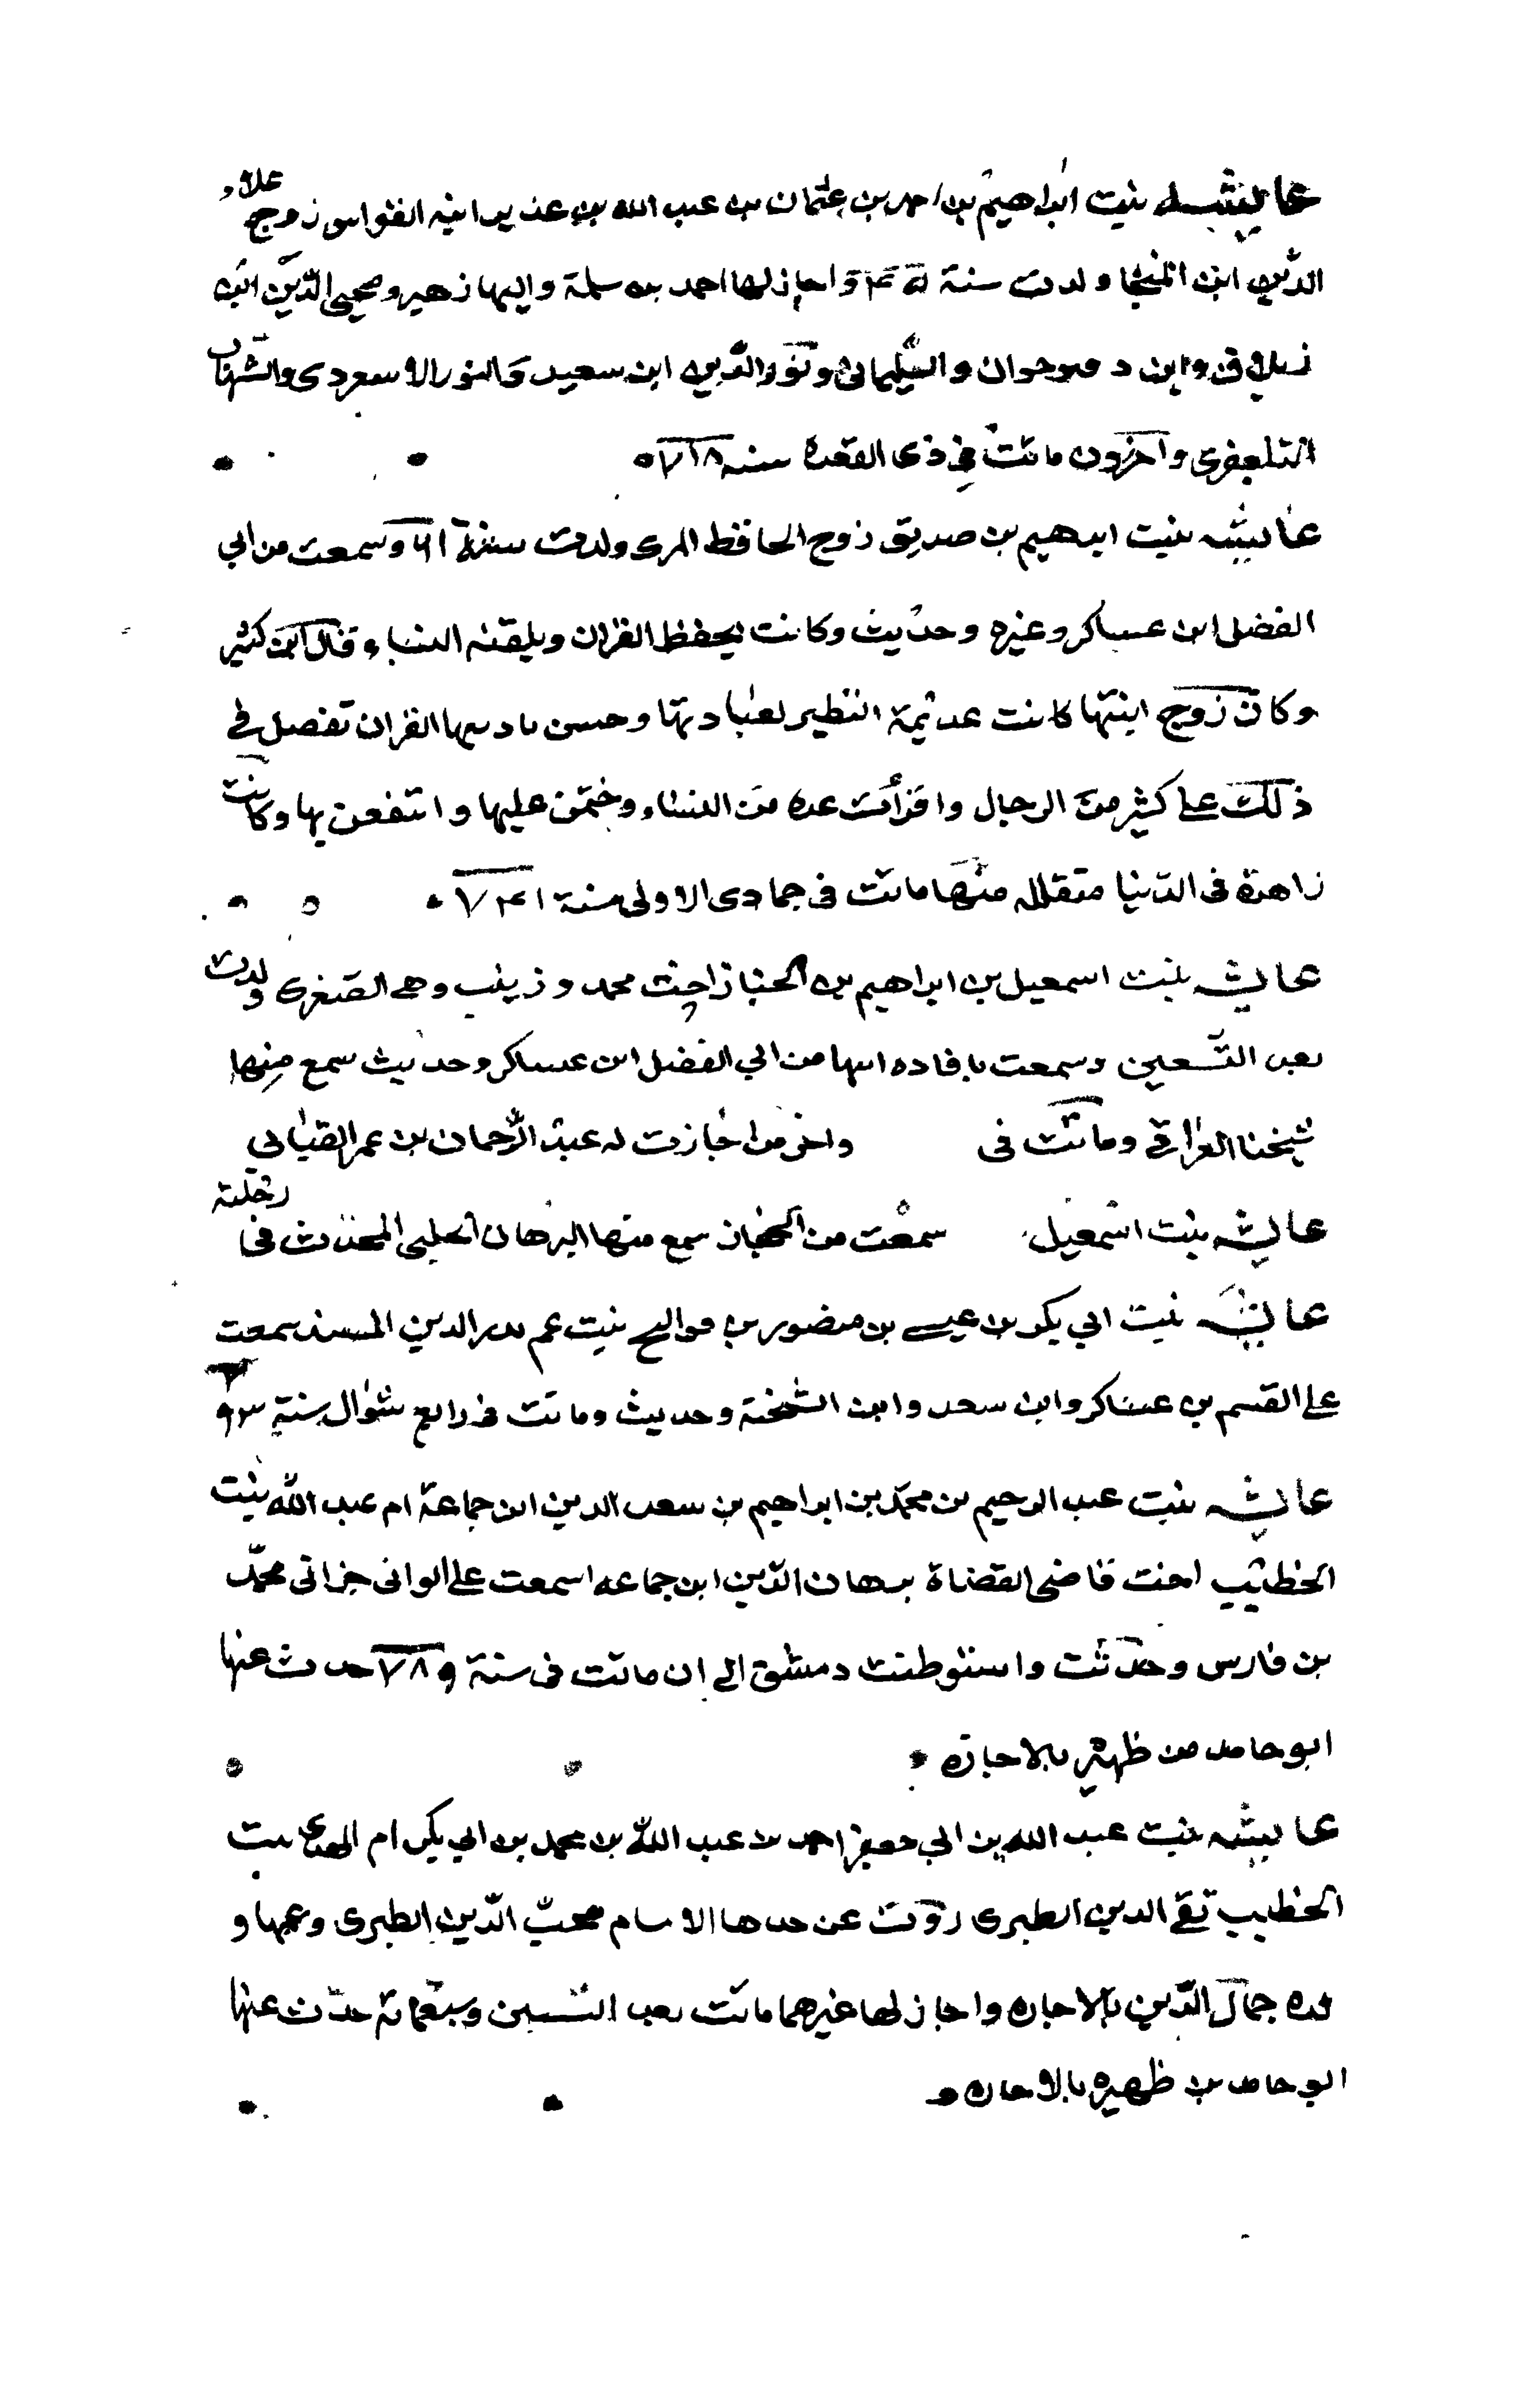 عايشه بنت ابراهيم بن احمد بن عثمان بن عبد الله بن عذير ابنه القواس زوج علاء
الدين ابن المنجا ولدت سنة واجاز لها احمد بن سلمة واليها زهير ومحيى الدين ابن
زيلاق وابن دموجوان والسليمانى ونور الدين ابن سعيد والنور الاسعردى والشهاب
التلعفرى واخرون ماتت فى ذى القعدة سنه ٧١٨
عايشه بنت ابرهيم بن صديق زوج الحافظ المزى ولدت سنة ٦١ وسمعت من ابي
الفضل ابن عساكر وغيره وحديث وكانت يحفظ القران ويلقنه النساء قال ابن كثير
وكان زوج ابنتها كانت عديمة النظير لعبادتها وحسن تاديبها القران تفضل فى
ذلك على كثير من الرجال واقرأت عده من النساء وختمن عليها وانتفعن بها وكانت
زاهدة فى الدنيا متقلله منها ماتت فى جمادى الاولى سنة ٧٤١
عايشه بنت اسمعيل بن ابراهيم بن الخباز اخت محمد وزينب وهى الصغرى ولدت
بعد التسعين وسمعت بافاده ابيها من ابي الفضل ابن عساكر وحديث سمع منها
شيخنا العراقى وماتت فى واخر من اجازت له عبد الرحمان بن عمر القبابي
عايشه بنت اسمعيل سمعت من الخباز سمع منها البرهان الحلبى المحدث فى رحلته
عايشه بنت ابي بكر بن عيسى بن منصور بن قواليح بنت عم بدر الدين المسند سمعت
على القسم بن عساكر وابن سعد وابن الشحنة وحديث وماتت فى رابع شوال سنة ٩٣
عايشه بنت عبد الرحيم بن محمد بن ابراهيم بن سعد الدين ابن جماعة ام عبد الله بنت
الخطيب اخت قاضى القضاة برهان الدين ابن جماعه اسمعت على الوانى جزاتى محمد
بن فارس وحدثت واستوطنت دمشق الى ان ماتت فى سنة ٧٨٩ حدث عنها
ابو حامد من ظهيره بالاجازه
عايشه بنت عبد الله بن ابي جعفر احمد بن عبد الله بن محمد بن ابي بكر ام الهدى بنت
الخطيب تقى الدين الطبرى روت عن جدها الامام محب الدين الطبرى وعمها و
لده جمال الدين بالاجازه واجاز لها غيرهما ماتت بعد الستين وسبعماتة حدث عنها
ابو حامد بن ظهيره بالاجازه